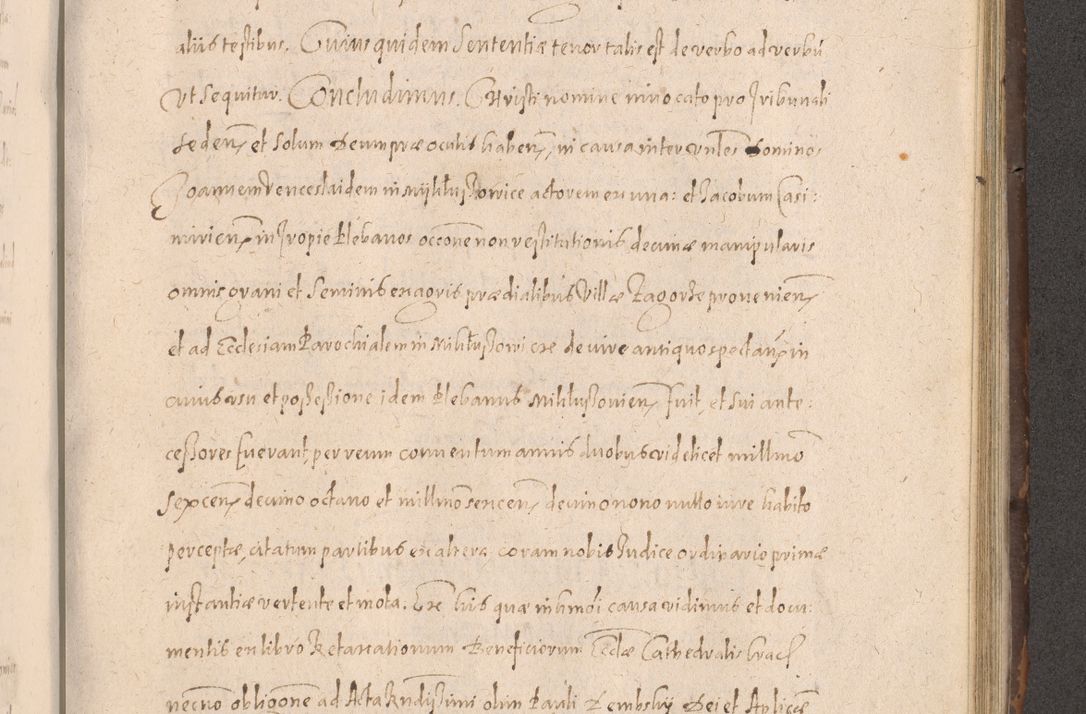 aliis testibus. Cuius quidem Sententiæ tenor talis est de verbo ad verbũ
vt Sequitur. Concludimus. Christi nomine inuocato pro Tribunali
Seden̄ et Solum Deum præ oculis haben̄, in causa inter Vnlēs Dominos
Joannem Venceslaidem in
actorem ex vna: et Jacobum Casi:
mirien̄ in Tropie Plebanos occõne non restitutionis decimæ manipularis
omnis grani et Seminis ex agris prædialibus Villæ Zagorze prouenien̄
et ad Ecclesiam Parochialem in
de iure antiquo spectan̄ in
cuius usu et possessione idem Plebanus
fuit, et sui ante:
cessores fuerant, per reum conuentum annis duobus videlicet millmõ
Sexcen̄ decimo octauo et millmõ sexcen̄ decimo nono nullo iure habito
perceptæ, citatum partibus ex altera coram nobis Judice ordinario primæ
instantiæ vertente et mota. Ex his quæ in hmõi causa vidimus et docu:
mentis ex libro Retaxationum Beneficiorum Eccłæ Cathedralis Crac
necnõ obligõne ad Acta Rndissimi olim Pauli Dembskij Dei et Aplicæ